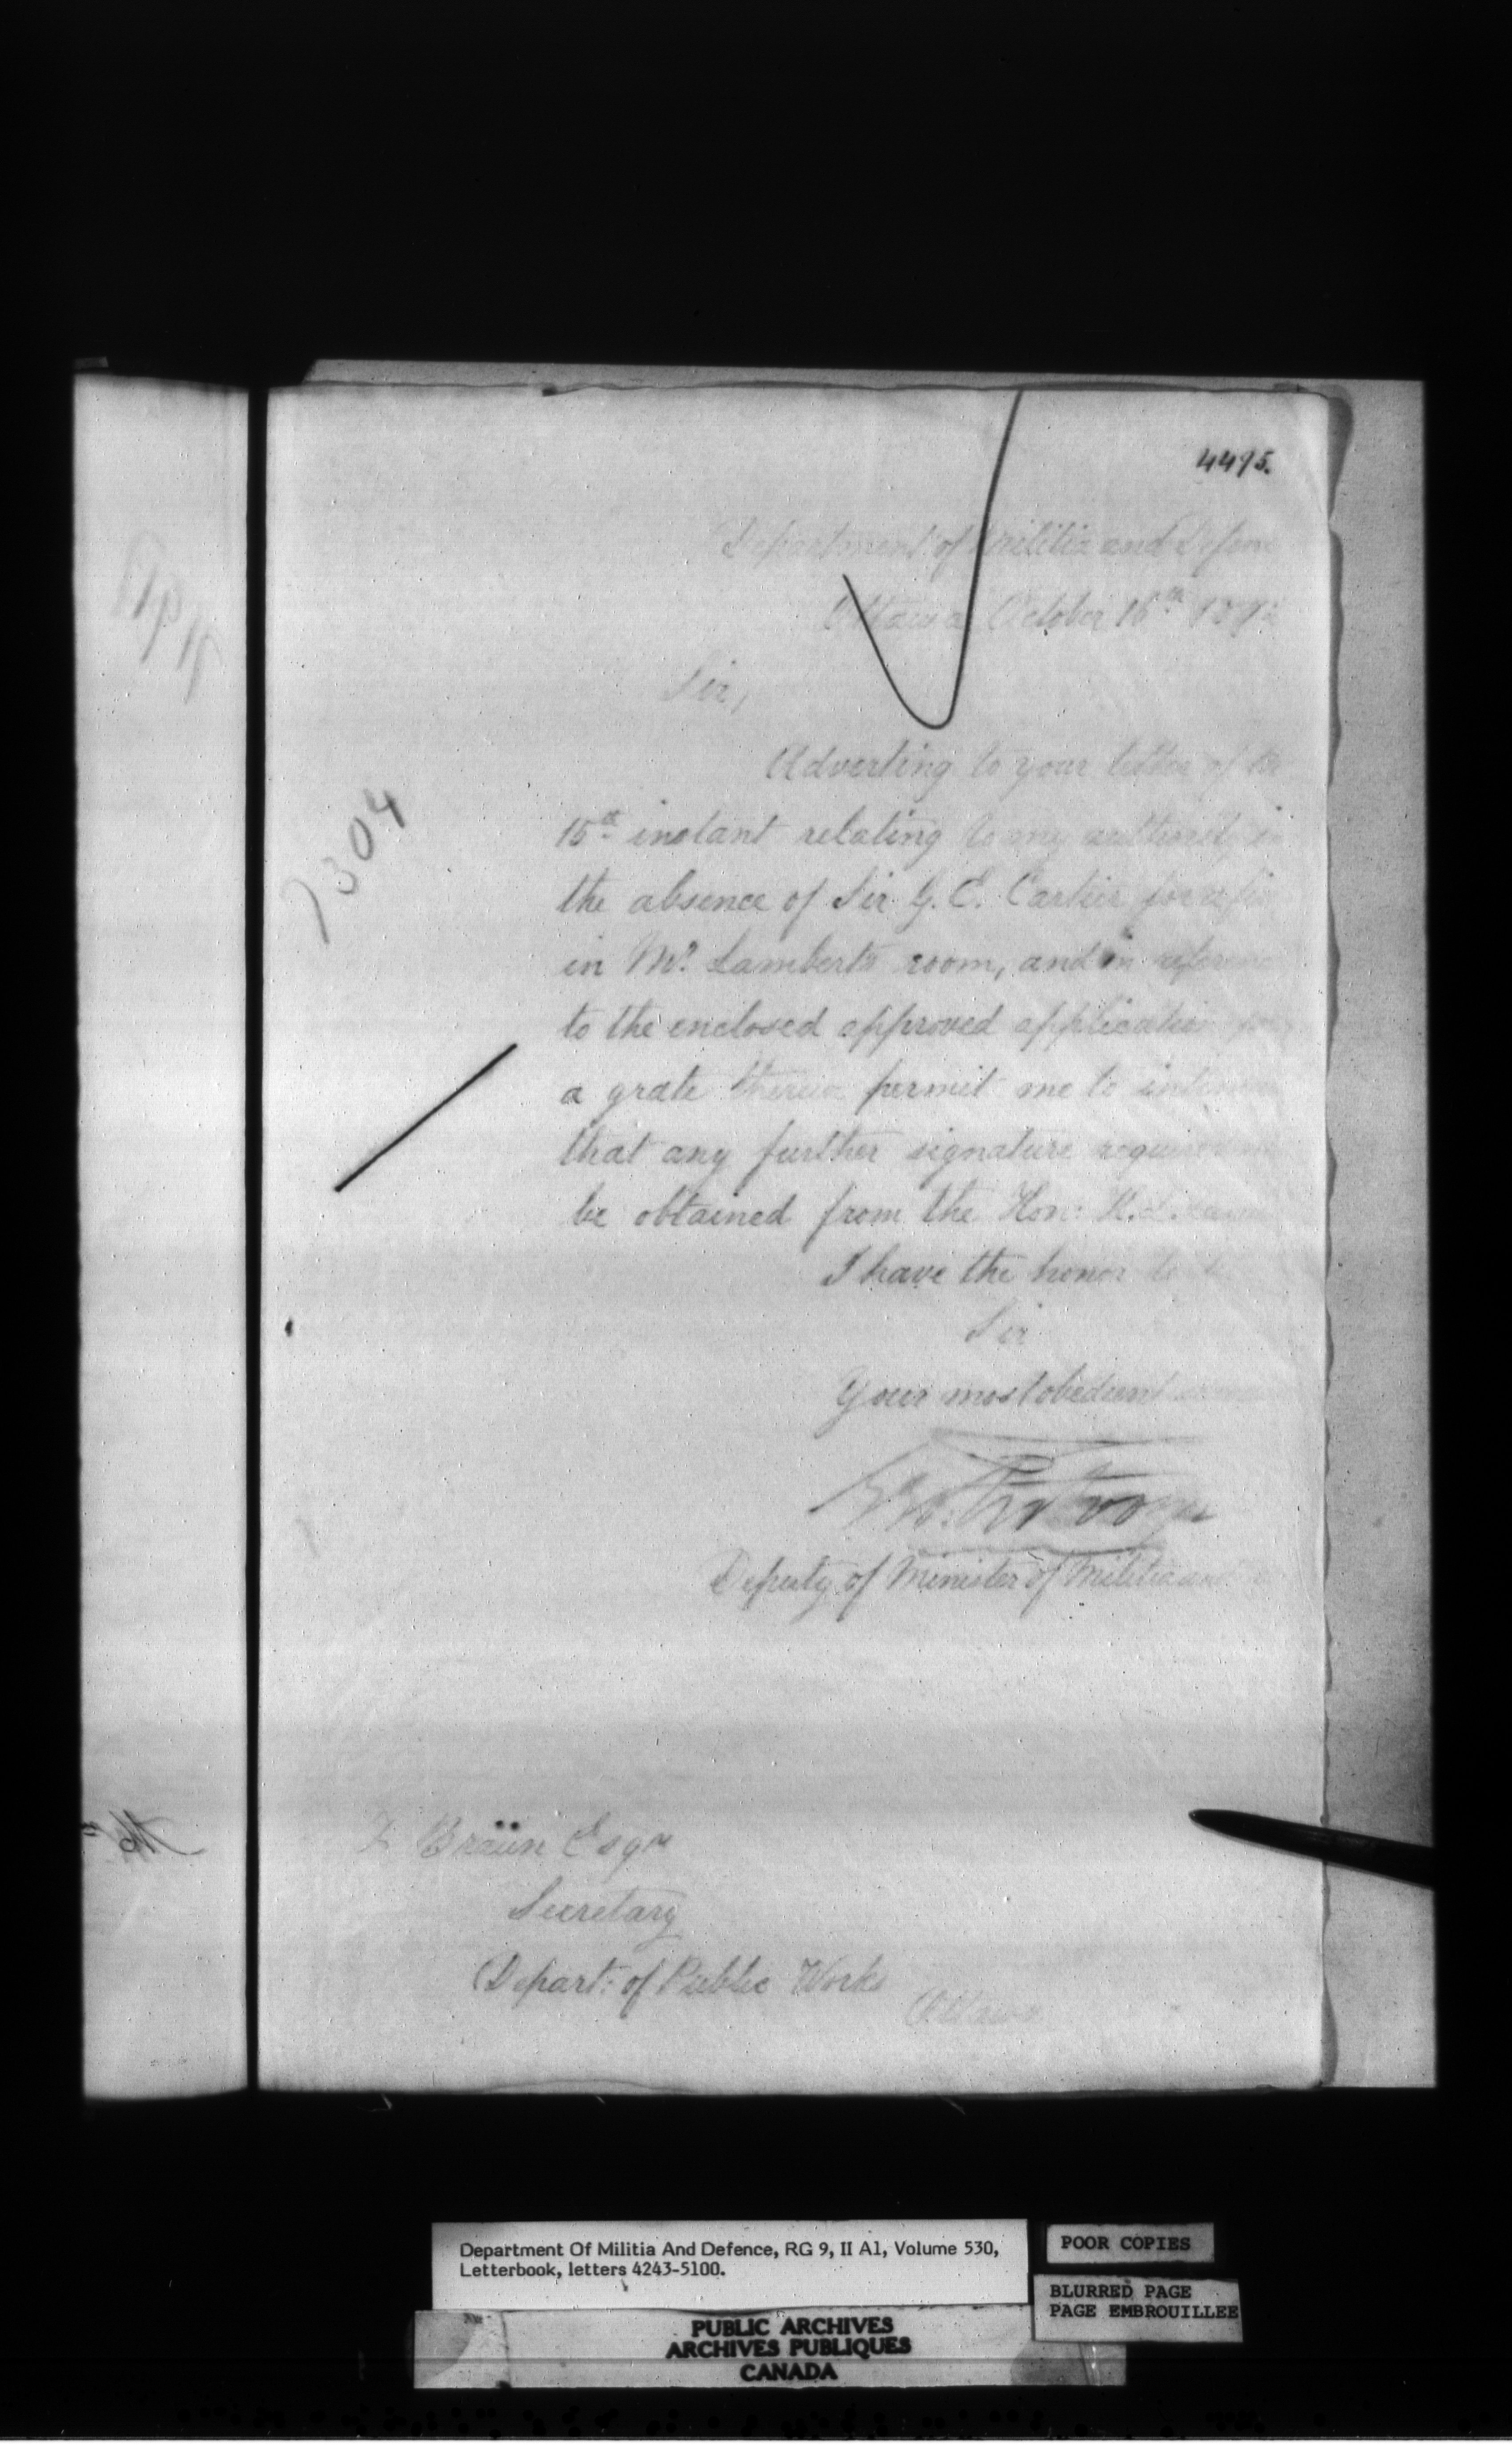 4495.
Department of Militia and
Ottawa October 16th
Sir,
Adverting to your letter of
15th instant relating to my authority
the absence of Sir G. E. Cartier for
in Mr. Lamberts room, and in
to the enclosed approved application
7304
a grate therein permit me to
that any further signature
be obtained from the Hon:
I have the honor to
Sir
Your most obedient
Deputy of Minister of Militia and
F Braün Esqr
Secretary
Depart: of Public Works
Ottawa
Department Of Militia And Defence, RG 9, II A1, Volume 530,
Letterbook, letters 4243-5100.
POOR COPIES
BLURRED PAGE
PAGE EMBROUILLEE
PUBLIC ARCHIVES
ARCHIVES PUBLIQUES
CANADA